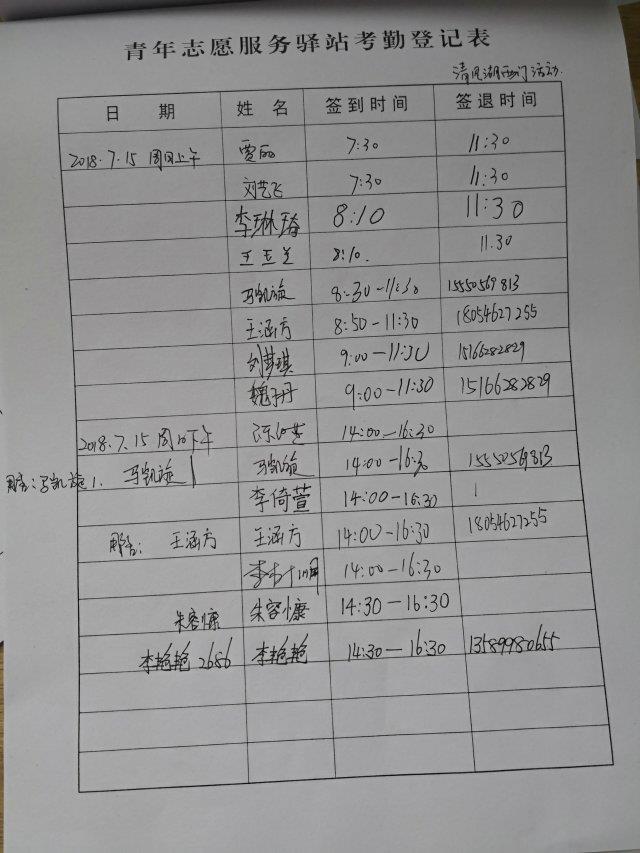 青年志愿服务驿站考勤登记表
清风湖西门活动.
日 期 姓 名 签到时间 签退时间
2018.7.15 周日上午 贾丽 7:30 11:30
刘艺飞 7:30 11:30
李琳琦 8:10 11:30
王玉兰 8:10. 11.30
马凯旋 8:30-11:30 15550569813
王涵方 8:50-11:30 18054627255
刘梦琪 9:00-11:30 15166282829
魏子丹 9:00-11:30 15166282829
2018.7.15 周日下午 14:00-16:30
马凯旋 1. 马凯旋 马凯旋 14:00-16:30 15550569813
李倚萱 14:00-16:30
王涵方 王涵方 14:00-16:30 18054627255
14:00-16:30
朱容慷 朱容慷 14:30-16:30
李艳艳 2686 李艳艳 14:30-16:30 13589980655